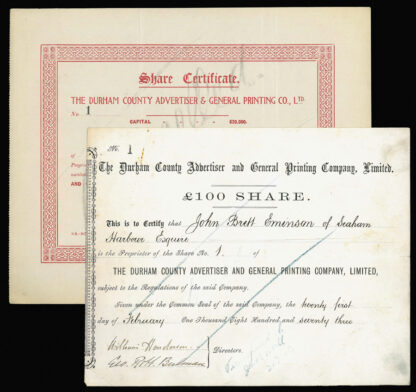 Share Certificate.
THE DURHAM COUNTY ADVERTISER & GENERAL PRINTING CO., LTD.
No. 1
CAPITAL £30,000.
of
AND
No. 1
The Durham County Advertiser and General Printing Company, Limited.
£100 SHARE.
This is to Certify that John Brett Eminson of Seaham
Harbour Esquire
is the Proprietor of the Share No. 1 of
THE DURHAM COUNTY ADVERTISER AND GENERAL PRINTING COMPANY, LIMITED,
subject to the Regulations of the said Company.
Given under the Common Seal of the said Company, the twenty first
day of February One Thousand Eight Hundred and seventy three
William Henderson
Directors.
Geo. R. H.